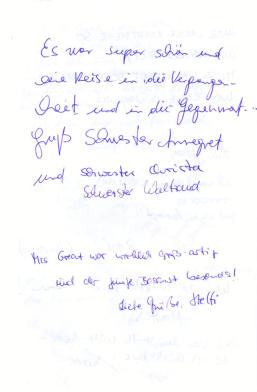 Es war super schön und
eine Reise in die Vergangen-
heit und in die Gegenwart...
Gruß Schwester Annegret
und Schwester Christa
Schwester Waltraud
Mrs Great war wirklich groß-artig
und der junge besonders!
Liebe Grüße, Steffi